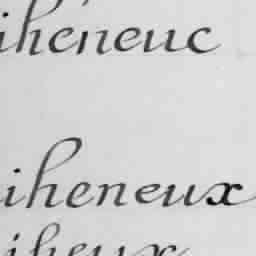 iheneuc
iheneux
iheux